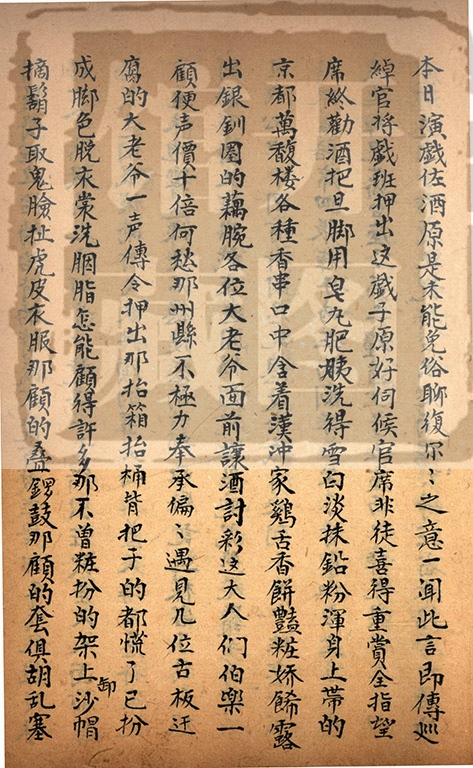 本日演戯佐酒原是未能免俗聊復尔〻之意一聞此言即傳巡
綽官将戯班押出这戯子原好伺候官席非徒喜得重賞全指望
席終勸酒把旦脚用皂丸肥胰洗得雪白淡抹鉛粉渾身上帯的
京都萬馥楼各種香串口中含着漢冲家鷄舌香餅豔粧嬌餙露
出銀釧圏的藕腕各位大老爷面前讓酒討彩这大人们伯樂一
顧便声價千倍何愁那州縣不極力奉承偏〻遇見几位古板迂
腐的大老爷一声傳令押出那抬箱抬桶背把子的都慌了已扮
成脚色脱衣裳洗胭脂怎能顧得許多那不曽粧扮的架上沙帽
摘鬍子取鬼臉扯虎皮衣服那顧的叠鑼鼓那顧的套俱胡乱塞
卸